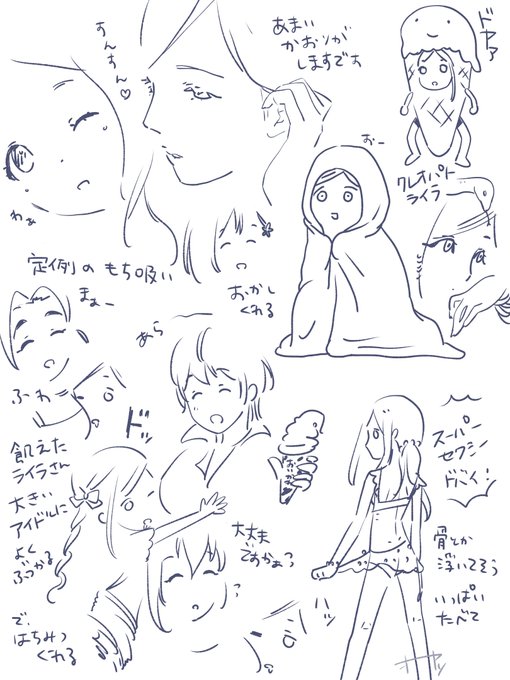 すんすん♡
あまい
かおりが
しますです
ドヤァ
わぁ
おー
クレオパト
ライラ
定例のもち吸い
おかし
くれる
まぁー
あら
ふわ
ドッ
飢えた
ライラさん
大きい
アイドルに
よく
ぶつかる
で、
はちみつ
くれる
大丈夫
ですかぁ?
?
ハッ
スーパー
セクシー
ドこイ!
骨とか
浮いてそう
いっぱい
たべて